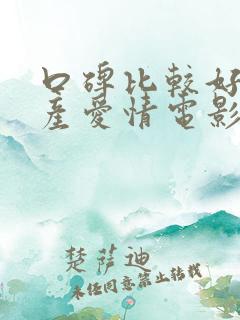 口碑比較好
產愛情電影
楚萨迪
未经同意禁止转载